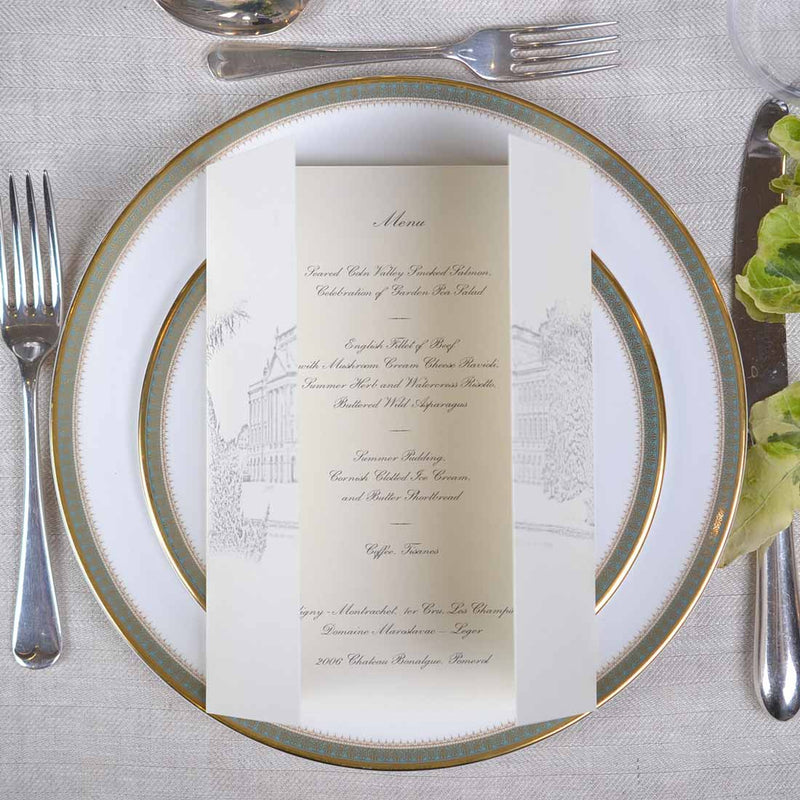 Menu
Seared Coln Valley Smoked Salmon,
Celebration of Garden Pea Salad
English Fillet of Beef
with Mushroom Cream Cheese Ravioli,
Summer Herb and Watercress Risotto,
Buttered Wild Asparagus
Summer Pudding,
Cornish Clotted Ice Cream,
and Butter Shortbread
Coffee, Tisanes
ligny - Montrachet, 1er Cru, Les Champs
Domaine Maroslavac - Leger
2006 Chateau Bonalgue, Pomerol